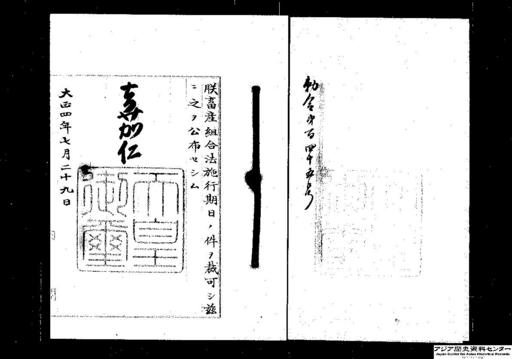 勅令第百四十五号
朕畜産組合法施行期日ノ件ヲ裁可シ茲
ニ之ヲ公布セシム
嘉仁
天皇御璽
大正四年七月二十九日
アジア歴史資料センター
Japan Center for Asian Historical Records